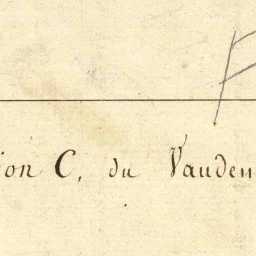 ion C, du Vauden